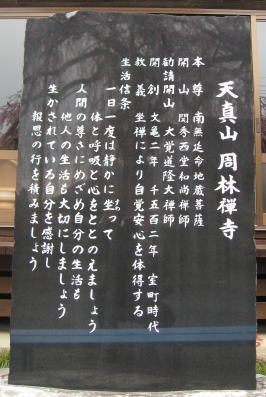 天真山 周林禅寺
本尊 南無延命地蔵菩薩
開山 関秀西堂和尚禅師
勧請開山 大覚道隆大禅師
開創 文亀二年 千五百二年 室町時代
教義 坐禅により自覚安心を体得する
生活信条
一日一度は静かに坐って
体と呼吸と心をととのえましょう
人間の尊さにめざめ自分の生活も
他人の生活も大切にしましょう
生かされている自分を感謝し
報恩の行を積みましょう